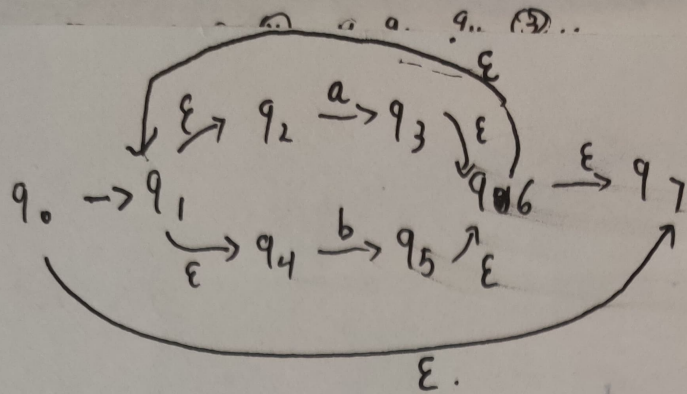 ε
ε q₂ a→ q₃ ε
q₀ → q₁ q₆ ε→ q₇
ε→ q₄ b→ q₅ ε
ε.